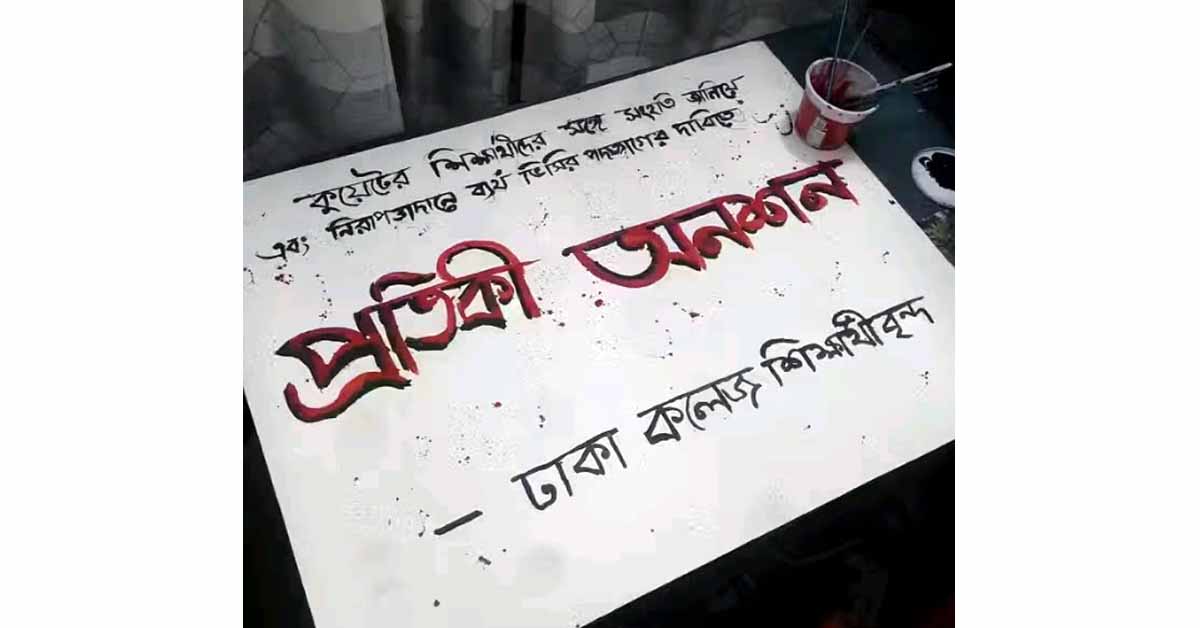 কুয়েটের শিক্ষার্থীদের সঙ্গে সংহতি জানিয়ে
এবং নিরাপত্তাদানে ব্যর্থ ভিসির পদত্যাগের দাবিতে
প্রতিকী অনশন
- ঢাকা কলেজ শিক্ষার্থীবৃন্দ